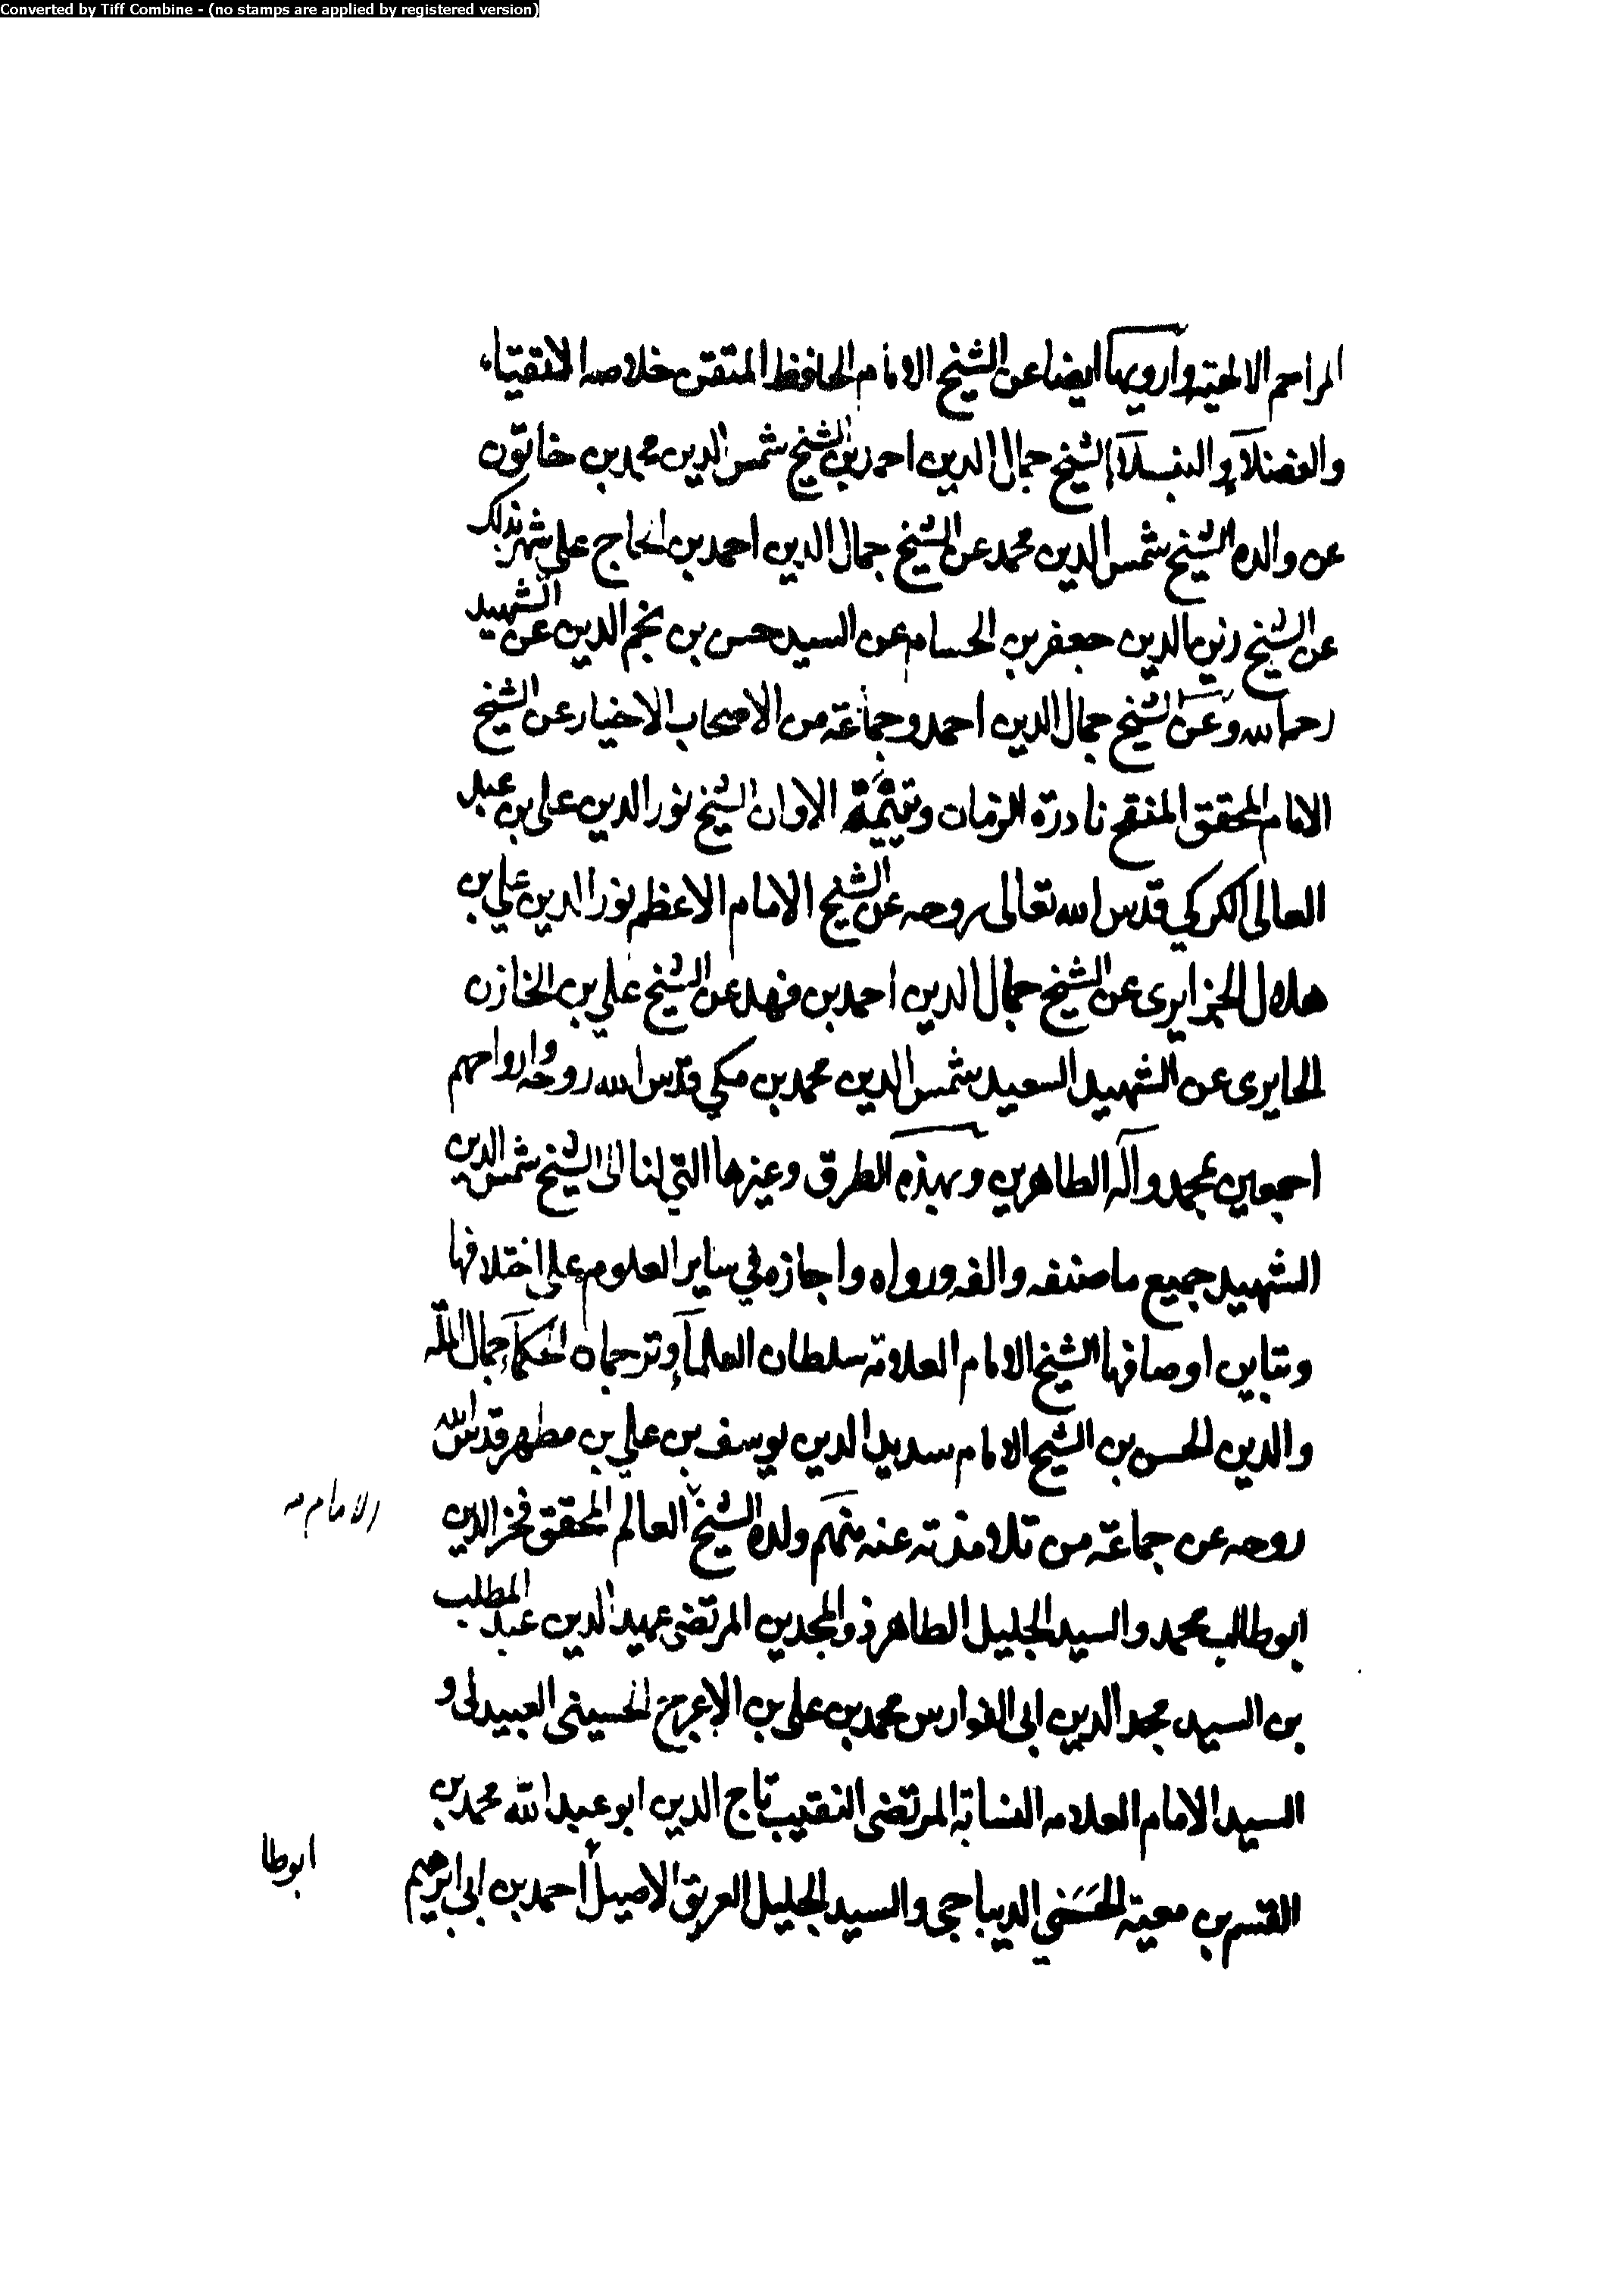 Converted by Tiff Combine - (no stamps are applied by registered version)
المراحم الالهية وارويها ايضا عن الشيخ الامام الحافظ المتقن خلاصه الاتقياء
والفضلآء والنبلآء الشيخ جمال الدين احمد بن الشيخ شمس الدين محمد بن خاتون
عن والده الشيخ شمس الدين محمد عن الشيخ جمال الدين احمد بن الحاج علي شهر بذلك
عن الشيخ زين الدين جعفر بن الحسام عن السيد حسن بن نجم الدين عن الشهيد
رحمه الله وعن الشيخ جمال الدين احمد وجماعة من الاصحاب الاخيار عن الشيخ
الامام المحقق المنقح نادرة الزمان ويتيمة الاوان الشيخ نور الدين علي بن عبد
العالى الكركي قدس الله تعالى روحه عن الشيخ الامام الاعظم نور الدين علي بن
هلال الجزايرى عن الشيخ جمال الدين احمد بن فهد عن الشيخ علي بن الخازن
الحايرى عن الشهيد السعيد شمس الدين محمد بن مكي قدس الله روحه وارواحهم
اجمعين بمحمد وآله الطاهرين وبهذه الطرق وغيرها التي لنا الى الشيخ شمس الدين
الشهيد جميع ما صنفه والفه ورواه واجازه في ساير العلوم على اختلافها
وتباين اوصافها الشيخ الامام العلامة سلطان العلمآء وترجمان الحكمآء جمال الملة
والدين الحسن بن الشيخ الامام سديد الدين يوسف بن علي بن مطهر قدس الله
روحه عن جماعة من تلامذته عنه منهم ولده الشيخ العالم المحقق فخر الدين
الامام
ابوطالب محمد والسيد الجليل الطاهر ذو المجدين المرتضى عميد الدين عبد المطلب
بن السيد مجد الدين ابى الفوارس محمد بن على بن الاعرج الحسينى العبيدلى و
السيد الامام العلامه النسابة المرتضى النقيب تاج الدين ابو عبد الله محمد بن
القسم بن معية الحسني الديباجى والسيد الجليل العريق الاصيل احمد بن ابى ابرهيم
ابوطا